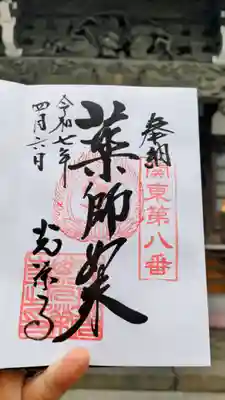 奉拝
関東第八番
薬師如来
令和七年
四月六日